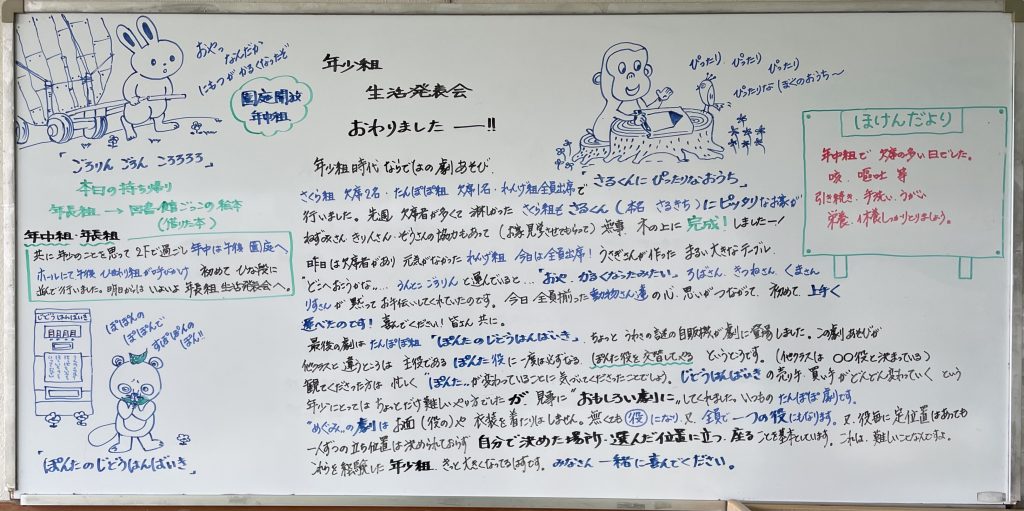 おやっ
なんだか
にもつが かるくなったぞ
園庭開放
年中組
「ごろりん ごろん ころろろろ」
本日の持ち帰り
年長組 → 図書館ごっこの絵本
(借りた本)
年中組・年長組
共に 年少のことを思って 2Fで過ごし 年中は午後 園庭へ
ホールにて午後 ひまわり組が呼びかけ 初めて ひな壇に
並んで行いました。明日からは いよいよ 年長組 生活発表会へ。
じどうはんばいき
ぽぽんの
ぽぽんで
すぽぽんの
ぽん!!
「ぽんたのじどうはんばいき」
年少組
生活発表会
おわりました ー!!
ぴったり ぴったり ぴったり
ぴったりな ぼくのおうち〜
年少組時代 ならではの劇あそび
さくら組 欠席2名・たんぽぽ組 欠席1名・れんげ組全員出席で 「さるくんに ぴったりなおうち」
行いました。先週 欠席者が多くて 淋しかった さくら組も さるくん (本名 さるきち) にピッタリなお家が
ねずみさん きりんさん ぞうさんの協力もあって (お家見学させてもらって) 無事 木の上に 完成! しましたー!
昨日は欠席者があり 元気がなかった れんげ組 今日は全員出席! うさぎさんが作った まるい大きなテーブル
"どこへおこうかな"… うんとこ ごろりん と運んでいると… "おや かるくなったみたい" ろばさん、きつねさん、くまさん
りすさん が 黙って お手伝いしてくれていたのです。今日 全員揃った 動物さん達の心・思いがつながって 初めて 上手く
運べたのです! 喜んでください! 皆さん 共に。
最後の劇は たんぽぽ組 "ぽんたのじどうはんばいき" ちょっと うわさの話の自販機が劇に登場しました。この劇あそびが
他クラスと違うところは 主役である ぽんた役に 一度は必ずなる ぽんた役を交替してやる というとこです。(他クラスは 〇〇役と決まっている)
観てくださった方は 忙しく "ぽんた"が変わっていることに 気づいてくださったことでしょう。じどうはんばいきの売り手・買い手がどんどん変わっていく という
年少にとっては ちょっとだけ難しいやり方でしたが 見事に "おもしろい劇に"してくれました。いつもの たんぽぽ劇です。
"めぐみ"の劇は お面 (役の) や 衣装を着たりはしません。無くても 役 になり 又 全員で 一つの役にもなります。又、役毎に 定位置はあっても
一人ずつの立ち位置は決められておらず 自分で決めた場所・選んだ位置に立つ、座ることを基本としています。これは、難しいことなんですよ。
これらを経験した 年少組、きっと 大きくなってるはずです。みなさん 一緒に 喜んでください。
ほけんだより
年中組で 欠席の多い日でした。
咳、嘔吐 等
引き続き、手洗い、うがい
栄養、休養しっかりとりましょう。